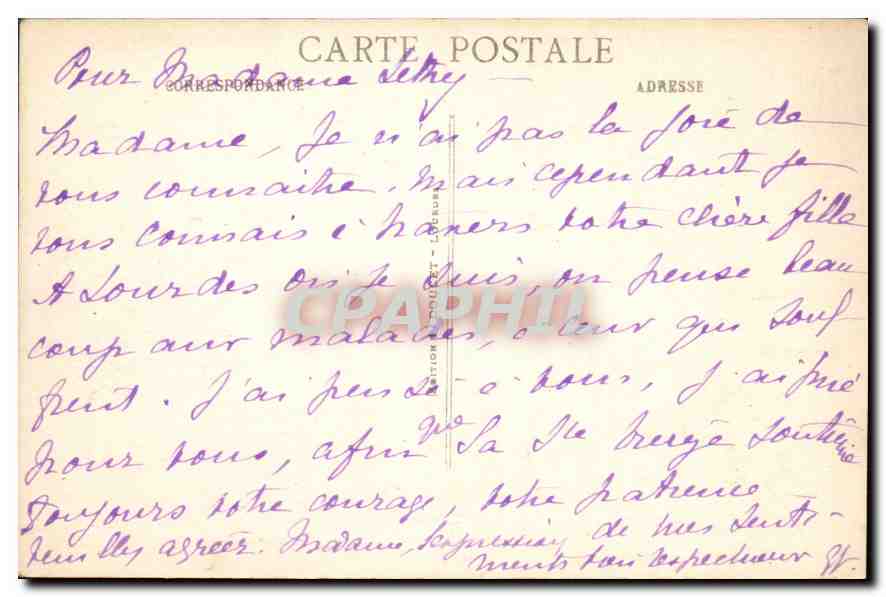 CARTE POSTALE
Pour Madame
CORRESPONDANCE
ADRESSE
Madame, Je n'ai pas la joie de
vous connaître. Mais cependant je
vous connais à travers votre chère fille
A Lourdes où je suis, on pense beau
coup aux malades, à ceux qui souf
frent. J'ai pensé à vous, J'ai prié
pour vous, afin que la Ste Vierge soutienne
toujours votre courage, votre patience
Veuillez agréer Madame, l'expression de mes senti-
ments bien respectueux
EDITION - LOURDES
CPAPHIL